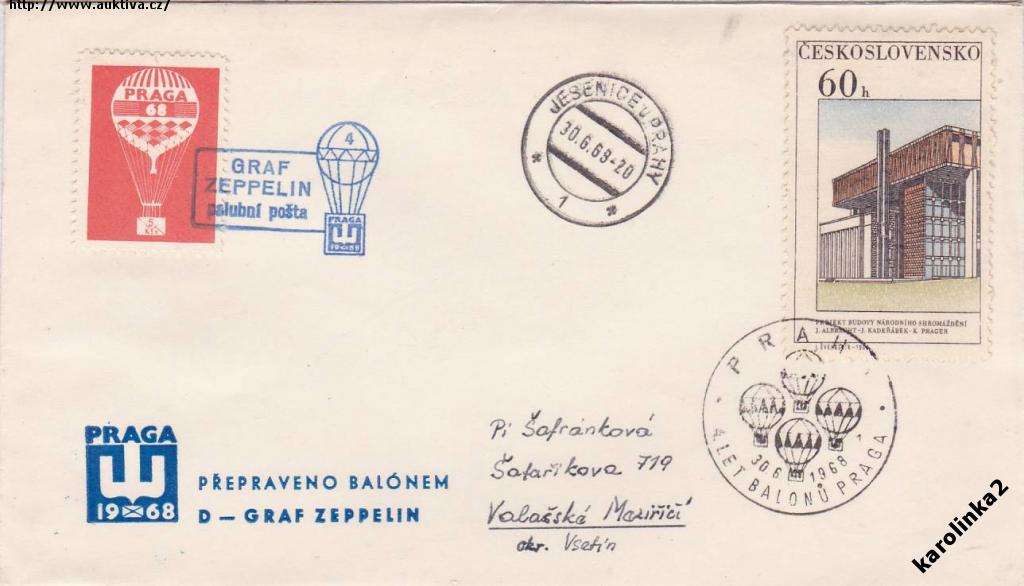 http://www.auktiva.cz/
PRAGA
68
5
Kčs
GRAF
ZEPPELIN
palubní pošta
4
PRAGA
1968
JESENICE U PRAHY
30.6.68-20
1
ČESKOSLOVENSKO
60 h
PROJEKT BUDOVY NÁRODNÍHO SHROMÁŽDĚNÍ
J. ALBRECHT-J. KADEŘÁBEK-K. PRAGER
PRAHA
1
30.6.1968
4. LET BALONŮ PRAGA
PRAGA
1968
PŘEPRAVENO BALÓNEM
D — GRAF ZEPPELIN
Pí Šafránková
Šafaříkova 719
Valašské Meziříčí
okr. Vsetín
karolinka2